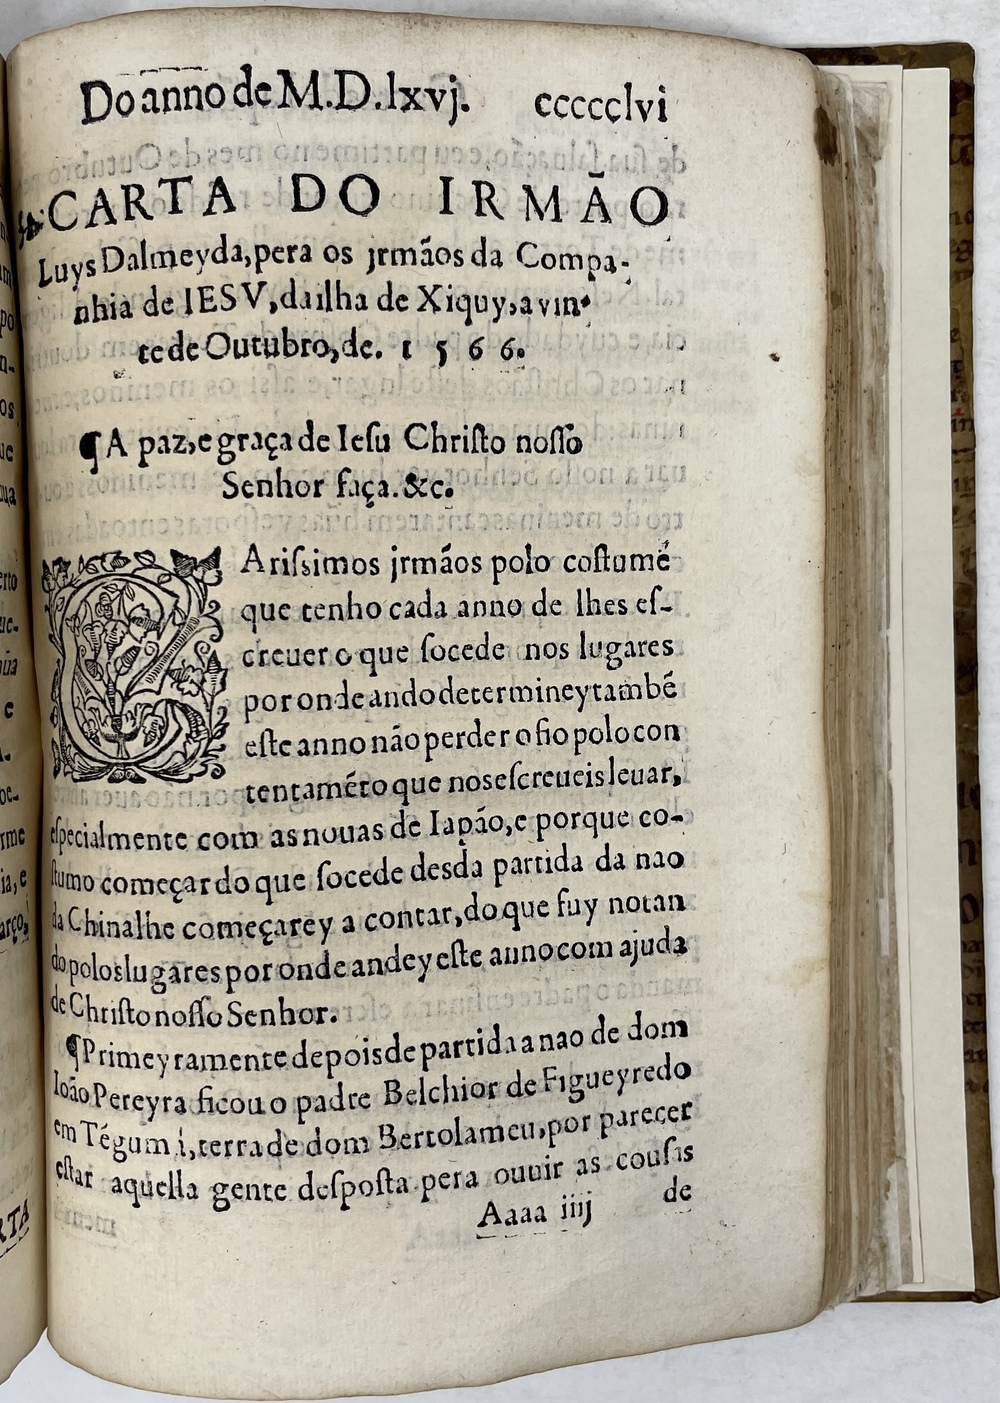 Do anno de M.D.lxvj. ccccclvi
CARTA DO IRMÃO
Luys Dalmeyda, pera os jrmãos da Compa-
nhia de IESV, da ilha de Xiquy, a vin-
te de Outubro, de. 1566.
¶A paz, e graça de Iesu Christo nosso
Senhor faça. &c.
CAriſsimos jrmãos polo coſtume
que tenho cada anno de lhes eſ-
creuer o que ſocede nos lugares
por onde ando determiney tambẽ
eſte anno não perder o fio polo con
tentamẽto que nos eſcreueis leuar,
eſpecialmente com as nouas de Iapão, e porque co-
ſtumo começar do que ſocede desda partida da nao
da China lhe começarey a contar, do que fuy notan
do polos lugares por onde andey eſte anno com ajuda
de Chriſto noſſo Senhor.
¶Primeyramente depois de partida a nao de dom
Ioão Pereyra ficou o padre Belchior de Figueyredo
em Tégumi, terra de dom Bertolameu, por parecer
eſtar aquella gente deſpoſta pera ouuir as couſas
Aaaa iiij de